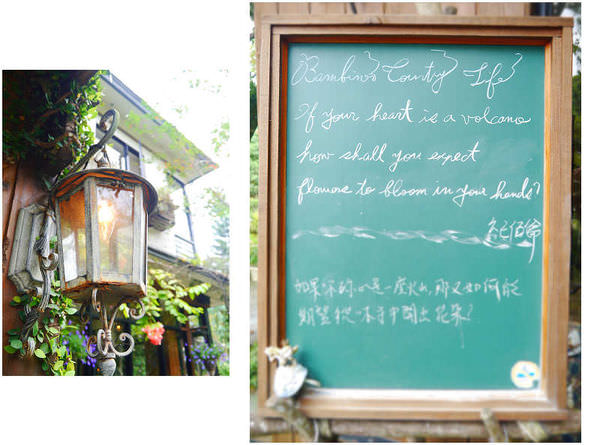 Bambino's Country Life
If your heart is a volcano
how shall you expect
flowers to bloom in your hands?
如果你的心是一座火山,那又如何能
期望從你手中開出花朵?